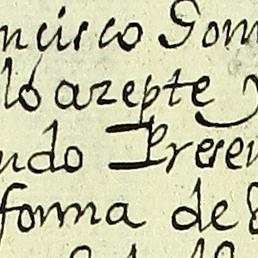 ncisco Gom
lo azepte y
ndo Presen
forma de